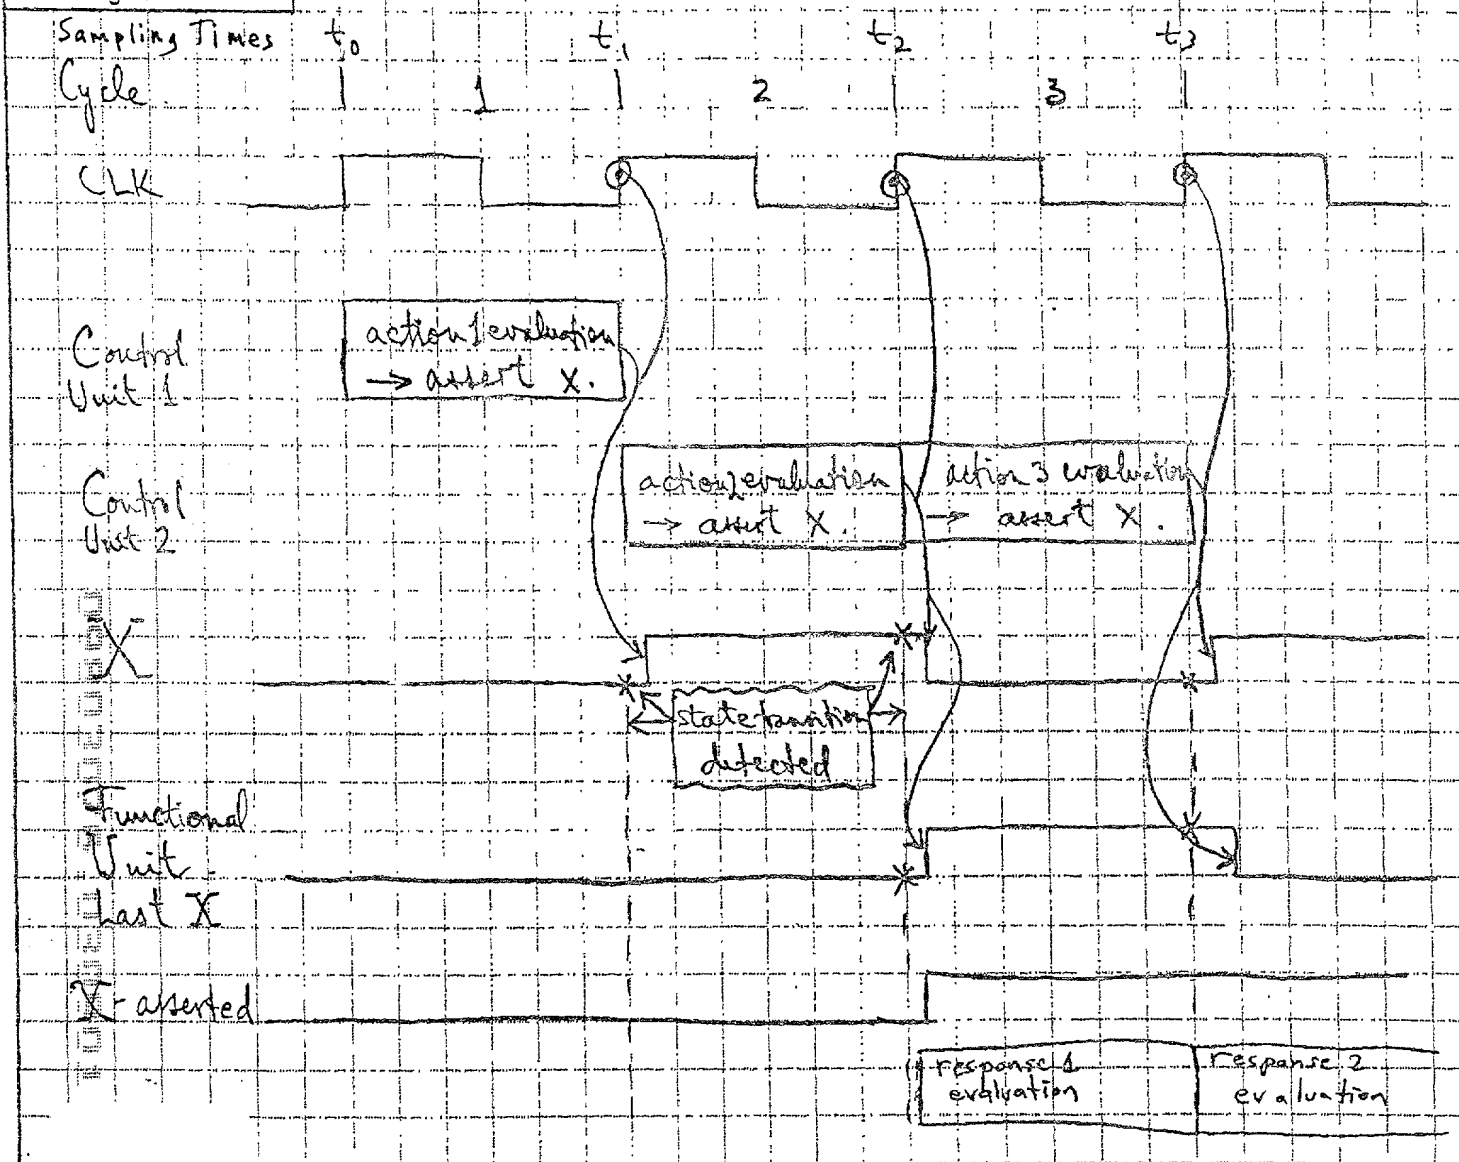 Sampling Times t0 t1 t2 t3
Cycle 1 2 3
CLK
Control
Unit 1
action 1 evaluation
→ assert X.
Control
Unit 2
action 2 evaluation
→ assert X.
action 3 evaluation
→ assert X.
X
state transition
detected
Functional
Unit -
Last X
X-asserted
response 1
evaluation
response 2
evaluation